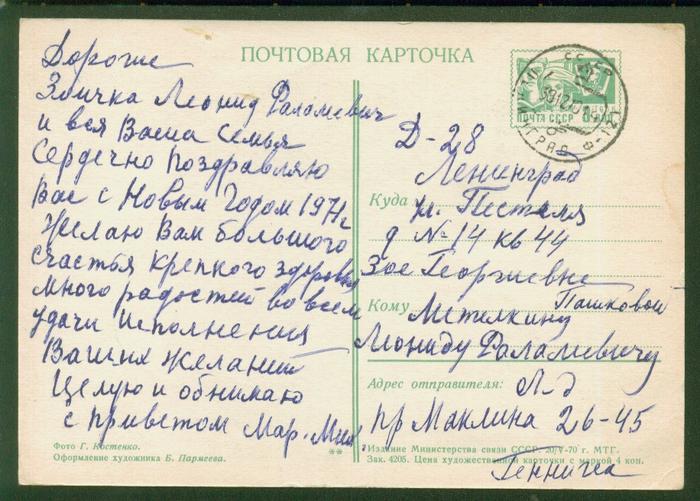 ПОЧТОВАЯ КАРТОЧКА
Дорогие
Зоичка Леонид Фаламевич
и вся Ваша Семья
Сердечно поздравляю
Вас с Новым Годом 1971г
Желаю Вам большого
счастья крепкого здоровья
много радостей во всем
удачи исполнения
Ваших желаний
Целую и обнимаю
с приветом Мар. Мих.
Фото Г. Костенко.
Оформление художника Б. Пармеева.
**
ПОЧТА СССР
Д-28
Ленинград
Куда ул. Пестеля
д №14 кв 44
Зое Георгиевне
Пашковой
Кому Метелкину
Леониду Фаламевичу
Адрес отправителя: Л-д
пр Маклина 26-45
Издание Министерства связи СССР. 20/V-70 г. МТГ.
Зак. 4205. Цена художественной карточки с маркой 4 коп.